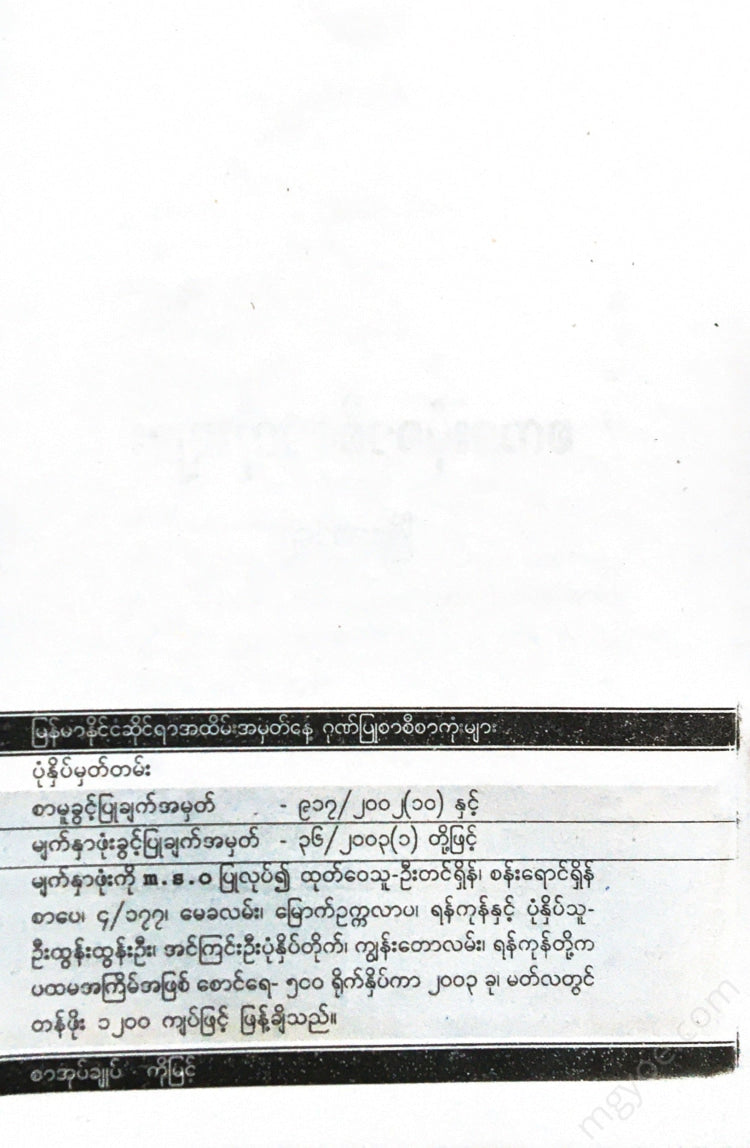 မြန်မာနိုင်ငံဆိုင်ရာအထိမ်းအမှတ်နေ့ ဂုဏ်ပြုစာစီစာကုံးများ
ပုံနှိပ်မှတ်တမ်း
စာမူခွင့်ပြုချက်အမှတ် - ၉၁၇/၂၀၀၂(၁၀) နှင့်
မျက်နှာဖုံးခွင့်ပြုချက်အမှတ် - ၃၆/၂၀၀၃(၁) တို့ဖြင့်
မျက်နှာဖုံးကို m.s.o ပြုလုပ်၍ ထုတ်ဝေသူ-ဦးတင်ရှိန်၊ စန်းရောင်ရှိန်
စာပေ၊ ၄/၁၇၇၊ မေခလမ်း၊ မြောက်ဥက္ကလာပ၊ ရန်ကုန်နှင့် ပုံနှိပ်သူ-
ဦးထွန်းထွန်းဦး၊ အင်ကြင်းဦးပုံနှိပ်တိုက်၊ ကျွန်းတောလမ်း၊ ရန်ကုန်တို့က
ပထမအကြိမ်အဖြစ် စောင်ရေ- ၅၀၀ ရိုက်နှိပ်ကာ ၂၀၀၃ ခု၊ မတ်လတွင်
တန်ဖိုး ၁၂၀၀ ကျပ်ဖြင့် ဖြန့်ချိသည်။
စာအုပ်ချုပ် - ကိုမြင့်
mgyoe.com